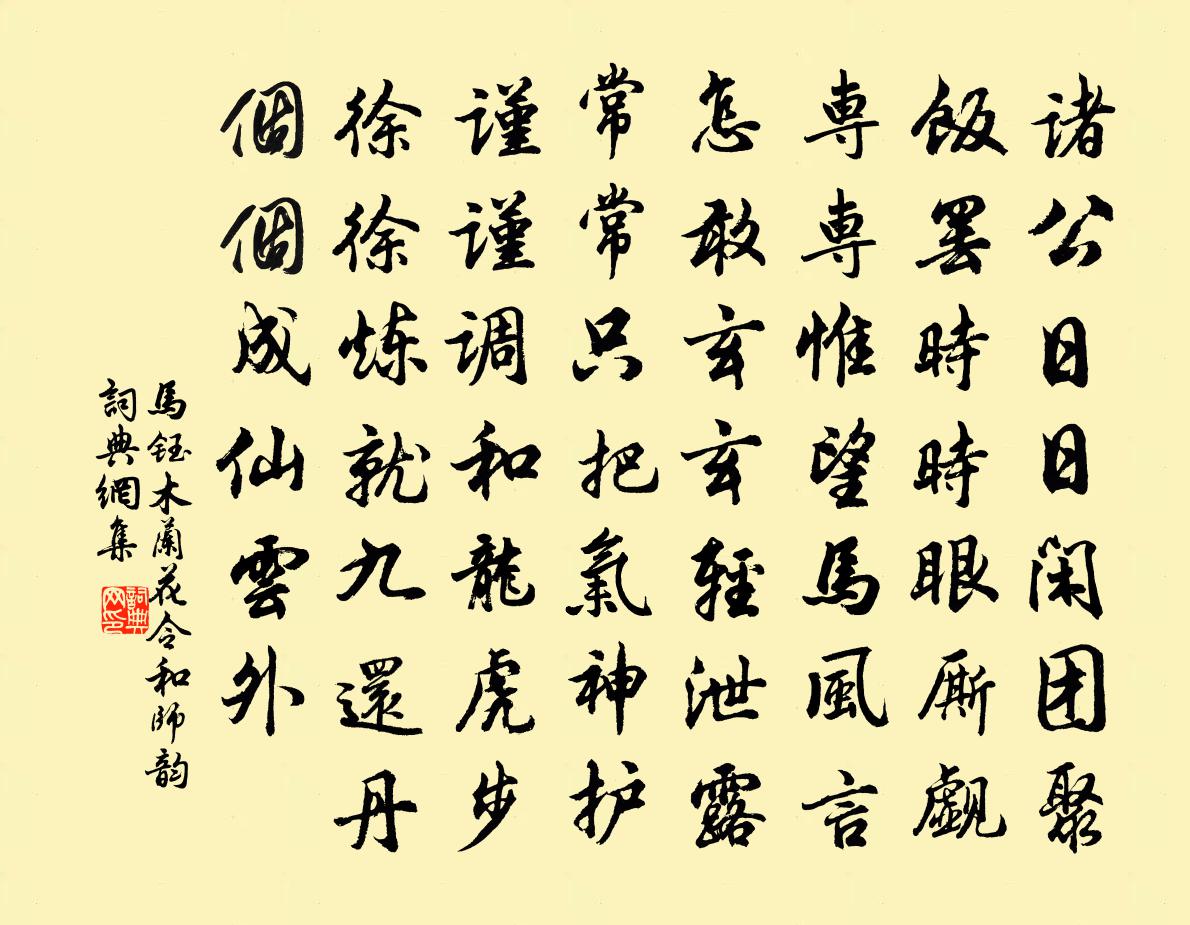 诸公日日闲团聚
饭罢時時眼厮觑
専専惟望馬風言
怎敢玄玄輕泄露
常常只把氣神护
谨谨调和龍虎步
徐徐炼就九還丹
個個成仙雲外
馬鈺木蘭花令和師韵
詞典網集
詞典网印